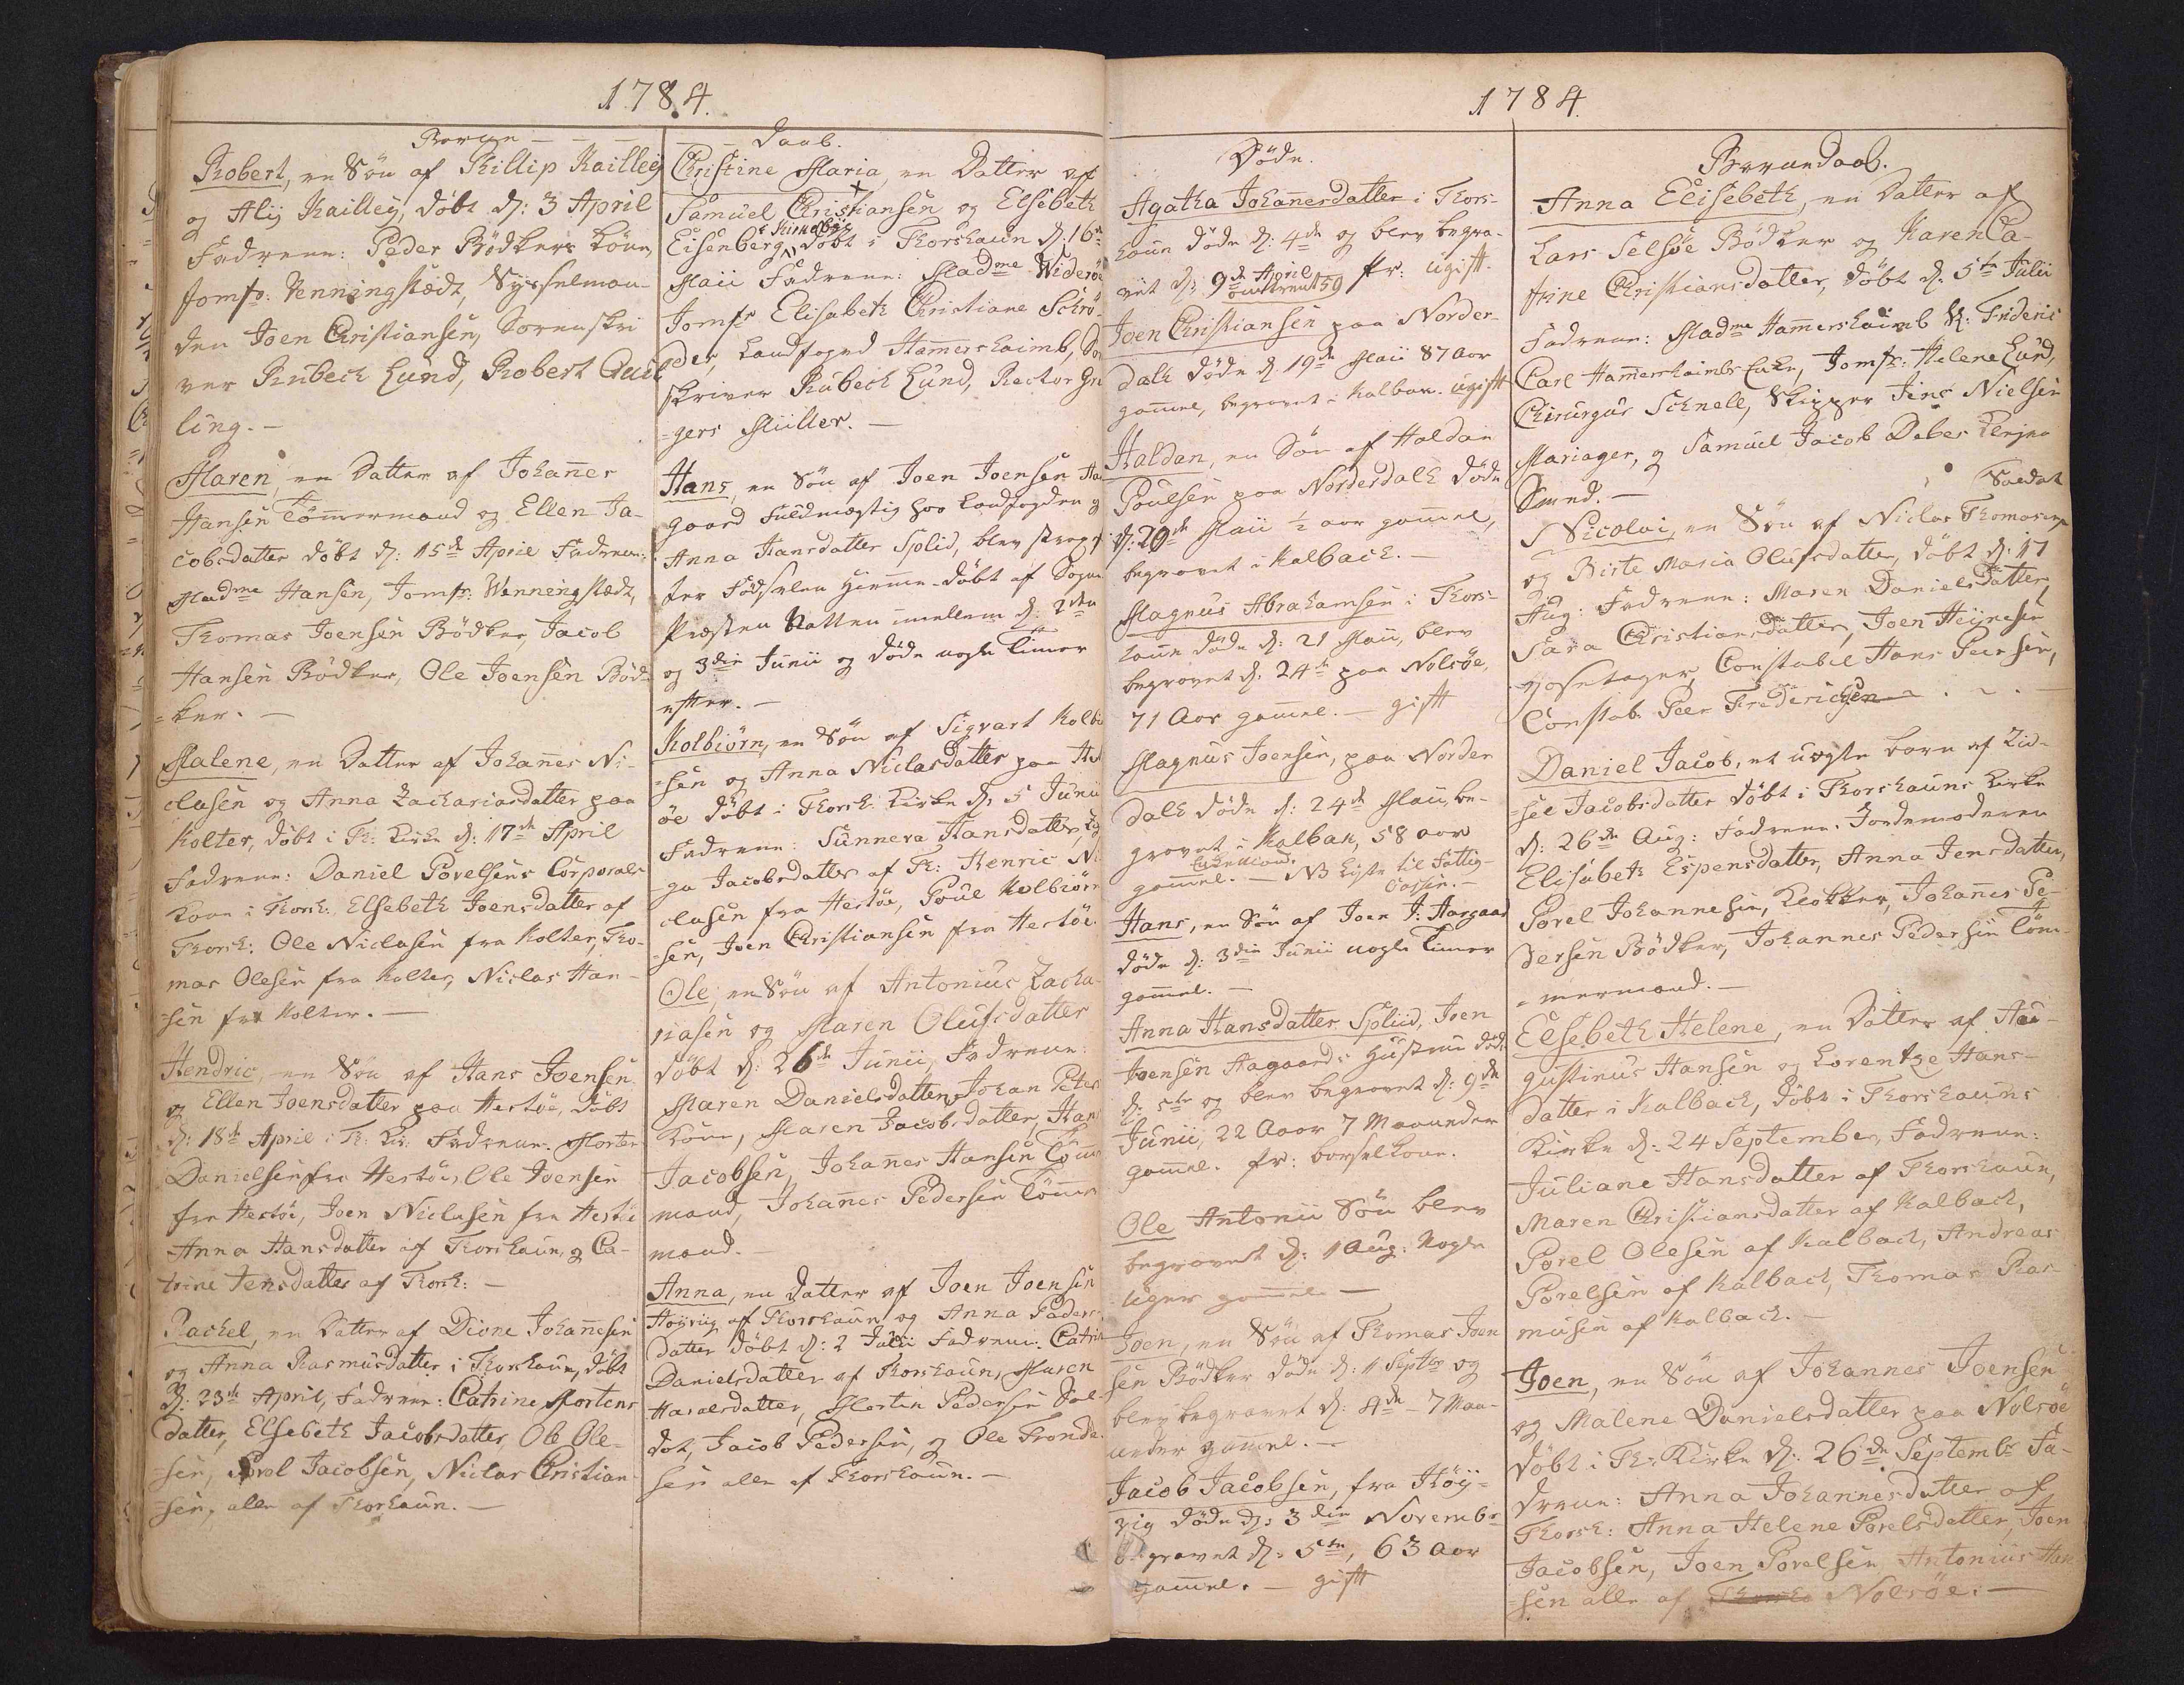 1784.
Børne - - -
Robert, en Søn af Phillip Kailleÿ
og Alÿ Kailleÿ, døbt d: 3 April
Fadrene: Peder Bødkers Kone,
Jomfr: Venningstædt, Sysselman-
den Joen Christiansen, Sorenskri
ver Rubech Lund, Robert Quil
ling. -
Maren, en Datter af Johañes
Hansen Tömmermand og Ellen Ja-
cobsdatter døbt d: 15de April Fadrene:
Madme Hansen, Jomfr: Wenningstædt,
Thomas Joensen Bödker, Jacob
Hansen Bödker, Ole Joensen Böd-
=ker. -
Malene, en Datter af Johañes Ni-
clasen og Anna Zachariasdatter paa
Kolter, döbt i Th: Kirke d: 17de April
Fadrene: Daniel Povelsens Corporals
Kone i Thorsh: Elsebeth Joensdatter af
Thorsh: Ole Niclasen fra Kolter, Tho-
mas Olesen fra Kolter, Niclas Han-
=sen fra Kolter. -
Hendric, en Søn af Hans Joensen
og Ellen Joensdatter paa Hestöe, döbt
d: 18de April i Th: Kir: Fadrene: Morten
Danielsen fra Hestöe, Ole Joensen
fra Hestöe, Joen Niclasen fra Hestöe
Anna Hansdatter af Thorshaun, og Ca-
trine Jensdatter af Thorsh: -
Rachel, en Datter af Dione Johañesen
og Anna Rasmusdatter i Thorshaun, döbt
d: 23de April, Fadrene: Catrine Mortens
datter, Elsebeth Jacobsdatter, Ole Ole-
=sen, Povel Jacobsen, Niclas Christian
=sen, alle af Thorshaun. -
- - - Daab.
Christine Maria, en Datter af
Samuel Christiansen og Elsebeth
Eisenberg, döbt i Thorshaun d: 16de
Maii Fadrene: Madme Wideröe
Jomfr Elisabeth Christiane Schrö-
der, Landfoged Hamershaimb, So
skriver Rubech Lund, Rector Gre
=gers Müller. -
Hans, en Søn af Joen Joensen Aar
gaard Fuldmægtig hos Landfogden og
Anna Hansdatter Splid, blev strax ef
ter Fødselen hjemme-døbt af Sogne
Præsten Natten imellem d: 2den
og 3die Junii og døde nogle Timer
efter. -
Kolbiörn, en Søn af Sigvart Kolbiörn
=sen og Anna Niclasdatter paa Hest
öe döbt i Thorsh: Kirke d: 5 Junii
Fadrene: Sunneva Hansdatter,
ga Jacobsdatter af Th: Henric Ni
clasen fra Hestöe, Poul Kolbiörn
=sen, Joen Christiansen fra Hestöe.
Ole, en Søn af Antonius Zacha-
riasen og Maren Olufsdatter
döbt d: 26de Junii, Fadrene:
Maren Danielsdatter, Johan Peters
Kone, Maren Jacobsdatter, Hans
Jacobsen, Johañes Hansen Tömer
mand, Johañes Pedersen Tömer
mand. -
Anna, en Datter af Joen Joensen
Höÿviig af Thorshaun og Anna Peders
datter döbt d: 2 Julii Fadrene: Catrine
Danielsdatter af Thorshaun, Maren
Haraldsdatter, Morten Pedersen Sol-
dat, Jacob Pedersen, og Ole Tronde
sen alle af Thorshaun. -
1784.
Döde.
Agatha Johañesdatter i Thors-
haun döde d: 4de og blev begra-
vet d: 9de April omtrent 59 Aar: ugift.
Joen Christiansen paa Norder-
dalh döde d. 19de Maii 87 Aar
gamel, begravet i Kalbak. ugift
Haldan, en Sön af Haldan
Poulsen paa Norderdalh döde
d: 20de Maii ½ aar gamel,
begravet i Kalbach. -
Magnus Abrahamsen i Thors-
haun döde d: 21 Maii, blev
begravet d. 24de paa Nolsöe,
71 Aar gamel. - gift
Magnus Joensen, paa Norder
dalh döde d: 24de Maii, be-
gravet i Kalbak, 58 aar
gamel. - Enkemand. NB Liiste til Fattig-
Cassen. -
Hans, en Sön af Joen J: Aargaard
döde d: 3die Junii nogle Timer
gamel. -
Anna Hansdatter Spliid, Joen
Joensen Aagaards Hustrue döde
d: 5te og blev begravet d: 9de
Junii, 22 Aar 7 Maaneder
gamel. fr: barselkone.
Ole Antonii Sön blev
begravet d: 1 Aug: Nogle
Uger gamel -
Joen, en Sön af Thomas Joen
sen Bödker döde d: 1 Septbr og
blev begravet d: 4de - 7 Maa-
neder gamel. -
Jacob Jacobsen, fra Höÿ-
viig döde d: 3die Novembr
begravet d: 5te, 63 aar
gamel. - gift
Børnedaab.
Anna Elisebeth, en Datter af
Lars Selsöe Bödker og Karen Ca-
trine Christiansdatter, döbt d: 5te Julii
Fadrene: Madme Hamershaimb Sl: Frideric
Carl Hamershaimbs Enke, Jomfr: Helene Lund,
Chirurgus Schnell, Skipper Jens Nielsen
Mariager, og Samuel Jacob Debes
Smed. -
Nicolai, en Sön af Niclas Thomasen Soldat
og Birte Maria Olufsdatter, döbt d: 17
Aug: Fadrene: Maren Danielsdatter,
Sara Christiansdatter, Joen Heÿnesen
Constabel Hans Peersen,
Constab: Peer Fridericsen - . - . -
Daniel Jacob, et uægte barn af Zid-
=sel Jacobsdatter döbt i Thorshauns Kirke
d: 26de Aug: Fadrene. Jordemoderen
Elisabeth Espensdatter, Anna Jensdatter,
Povel Johannesen, Klokker, Johañes Pe-
dersen Bödker, Johannes Pedersen Töm-
=mermand. -
Elsebeth Helene, en Datter af Au-
gustinus Hansen og Lorentze Hans-
datter i Kalbach, döbt i Thorshauns
Kirke d: 24 September, Fadrene:
Juliane Hansdatter af Thorshaun,
Maren Christiansdatter af Kalbach,
Povel Olesen af Kalbach, Andreas
Povelsen af Kalbach, Thomas Ras-
musen af Kalbach. -
Joen, en Sön af Johannes Joensen
og Malene Danielsdatter paa Nolsöe
döbt i Th: Kirke d: 26de Septembr Fa-
drene: Anna Johannesdatter af
Thorsh: Anna Helene Povelsdatter, Joen
Jacobsen, Joen Povelsen Antonius Han
=sen alle af Thorsh Nolsöe. -